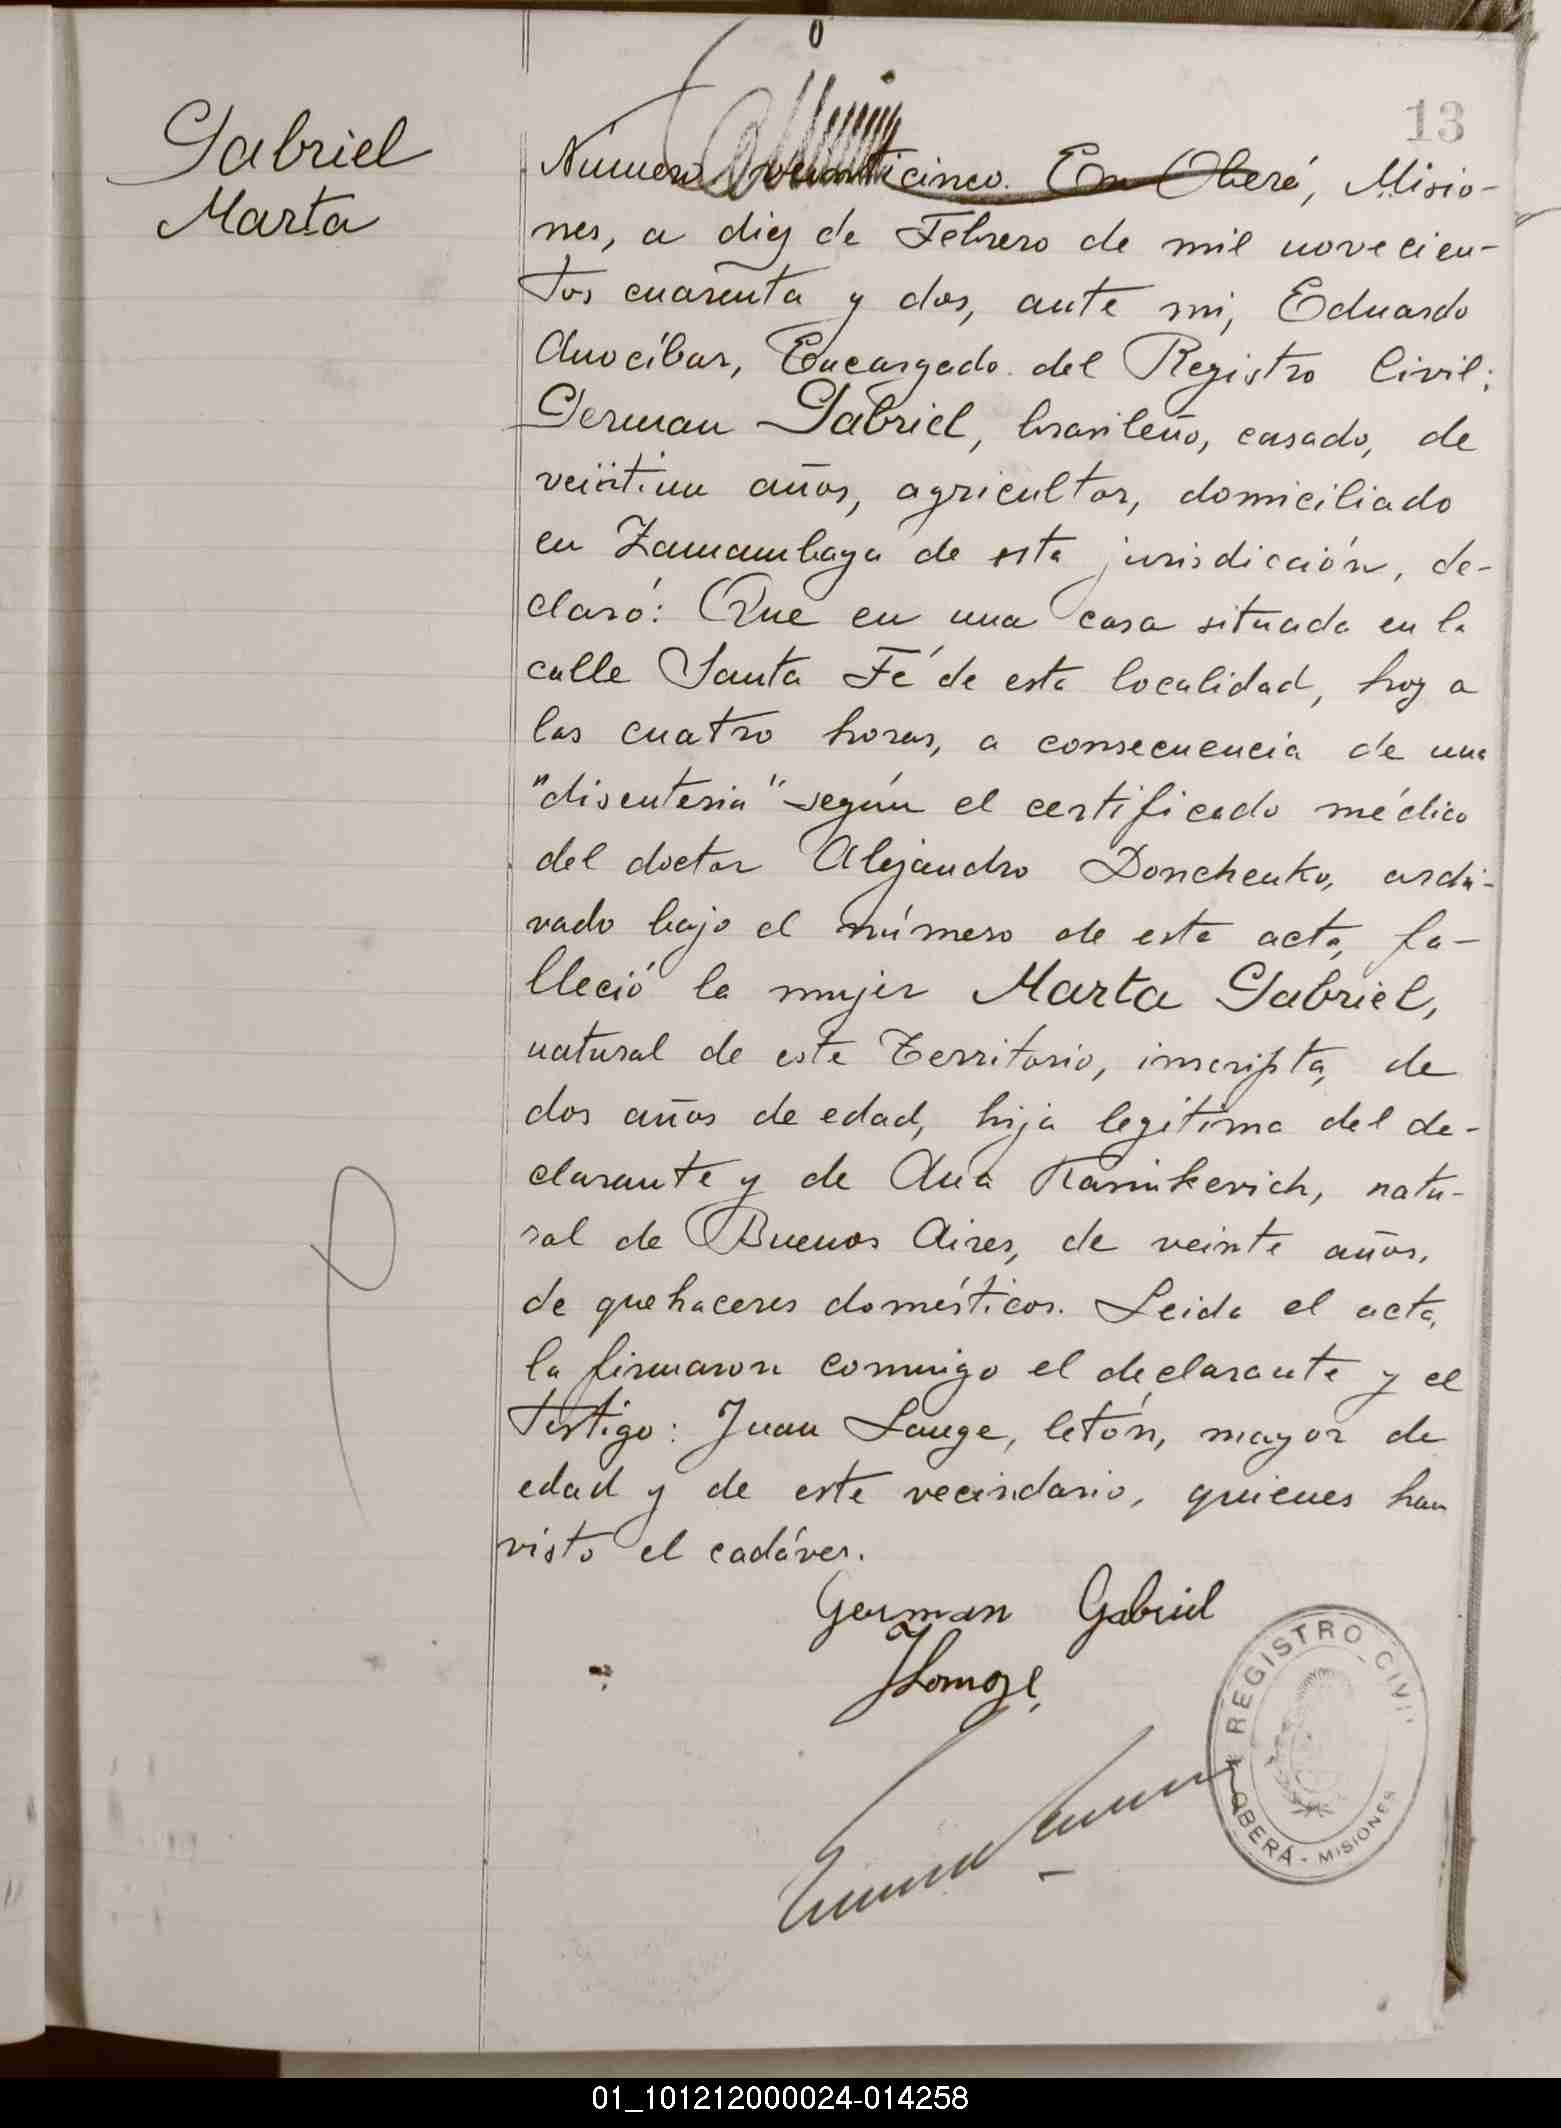 13
Gabriel
Marta
Número veinticinco. En Oberá, Misio-
nes, a diez de Febrero de mil novecien-
tos cuarenta y dos, ante mi, Eduardo
Anocíbar, Encargado del Registro Civil;
German Gabriel, brasileño, casado, de
veintiun años, agricultor, domiciliado
en Zamambaya de esta jurisdicción, de-
claró: Que en una casa situada en la
calle Santa Fé de esta localidad, hoy a
las cuatro horas, a consecuencia de una
"disenteria" según el certificado médico
del doctor Alejandro Donchenko, archi-
vado bajo el número de esta acta, fa-
lleció la mujer Marta Gabriel,
natural de este Territorio, inscripta, de
dos años de edad, hija legitima del de-
clarante y de Ana Kaminkevich, natu-
ral de Buenos Aires, de veinte años,
de quehaceres domésticos. Leida el acta,
la firmaron conmigo el declarante y el
testigo: Juan Lange, letón, mayor de
edad y de este vecindario, quienes han
visto el cadáver.
German Gabriel
REGISTRO CIVIL
OBERÁ - MISIONES
01_101212000024-014258